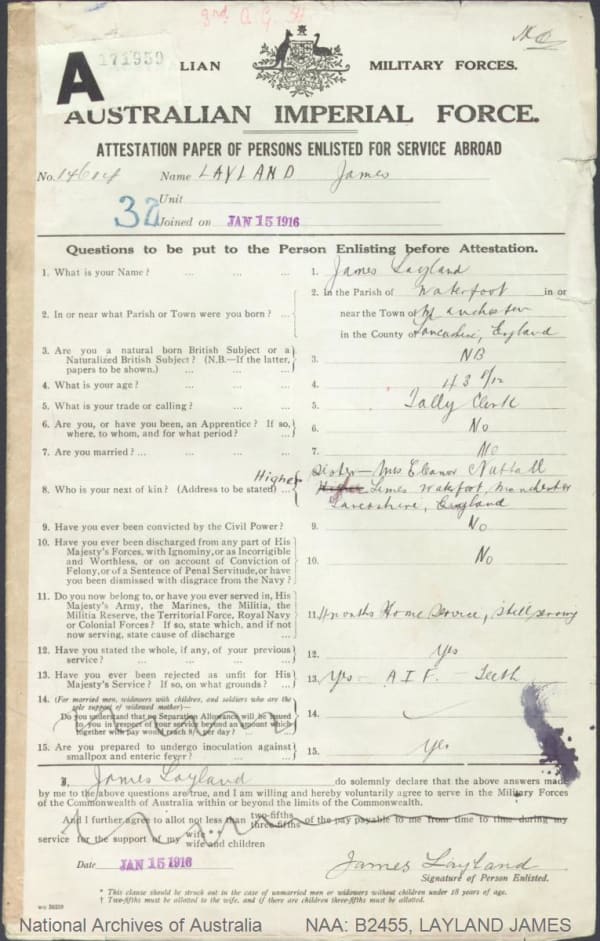 3rd A.G.H
171959
A
LIAN MILITARY FORCES.
AUSTRALIAN IMPERIAL FORCE.
ATTESTATION PAPER OF PERSONS ENLISTED FOR SERVICE ABROAD
No. 14614 Name LAYLAND James
Unit
32 Joined on JAN 15 1916
Questions to be put to the Person Enlisting before Attestation.
1. What is your Name? ... ... ... 1. James Layland
2. In or near what Parish or Town were you born? ... 2. In the Parish of Waterfoot in or
near the Town of Manchester
in the County of Lancashire, England
3. Are you a natural born British Subject or a
Naturalized British Subject? (N.B.—If the latter,
papers to be shown.) ... ... 3. NB
4. What is your age? ... ... ... 4. 43 5/12
5. What is your trade or calling? ... ... 5. Tally Clerk
6. Are you, or have you been, an Apprentice? If so,
where, to whom, and for what period? ... 6. No
7. Are you married? ... ... ... ... 7. No
8. Who is your next of kin? (Address to be stated) ... 8. Sister - Mrs Eleanor Nuttall
Higher Limes Waterfoot, Manchester
Lancashire, England
9. Have you ever been convicted by the Civil Power? 9. No
10. Have you ever been discharged from any part of His
Majesty's Forces, with Ignominy, or as Incorrigible
and Worthless, or on account of Conviction of
Felony, or of a Sentence of Penal Servitude, or have
you been dismissed with disgrace from the Navy? 10. No
11. Do you now belong to, or have you ever served in, His
Majesty's Army, the Marines, the Militia, the
Militia Reserve, the Territorial Force, Royal Navy
or Colonial Forces? If so, state which, and if not
now serving, state cause of discharge ... 11. months Home Service, still serving
12. Have you stated the whole, if any, of your previous
service? ... ... ... ... 12. Yes
13. Have you ever been rejected as unfit for His
Majesty's Service? If so, on what grounds? ... 13. Yes - A I F - Teeth
14. (For married men, widowers with children, and soldiers who are the
sole support of widowed mother)—
Do you understand that no Separation Allowance will be issued
to you in respect of your service beyond an amount which
together with pay would reach 8/- per day? ... 14.
15. Are you prepared to undergo inoculation against
smallpox and enteric fever? ... ... 15. Yes
I, James Layland do solemnly declare that the above answers made
by me to the above questions are true, and I am willing and hereby voluntarily agree to serve in the Military Forces
of the Commonwealth of Australia within or beyond the limits of the Commonwealth.
And I further agree to allot not less than two-fifths three-fifths of the pay payable to me from time to time during my
service for the support of my wife wife and children
Date JAN 15 1916 James Layland
Signature of Person Enlisted.
* This clause should be struck out in the case of unmarried men or widowers without children under 18 years of age.
† Two-fifths must be allotted to the wife, and if there are children three-fifths must be allotted.
National Archives of Australia NAA: B2455, LAYLAND JAMES